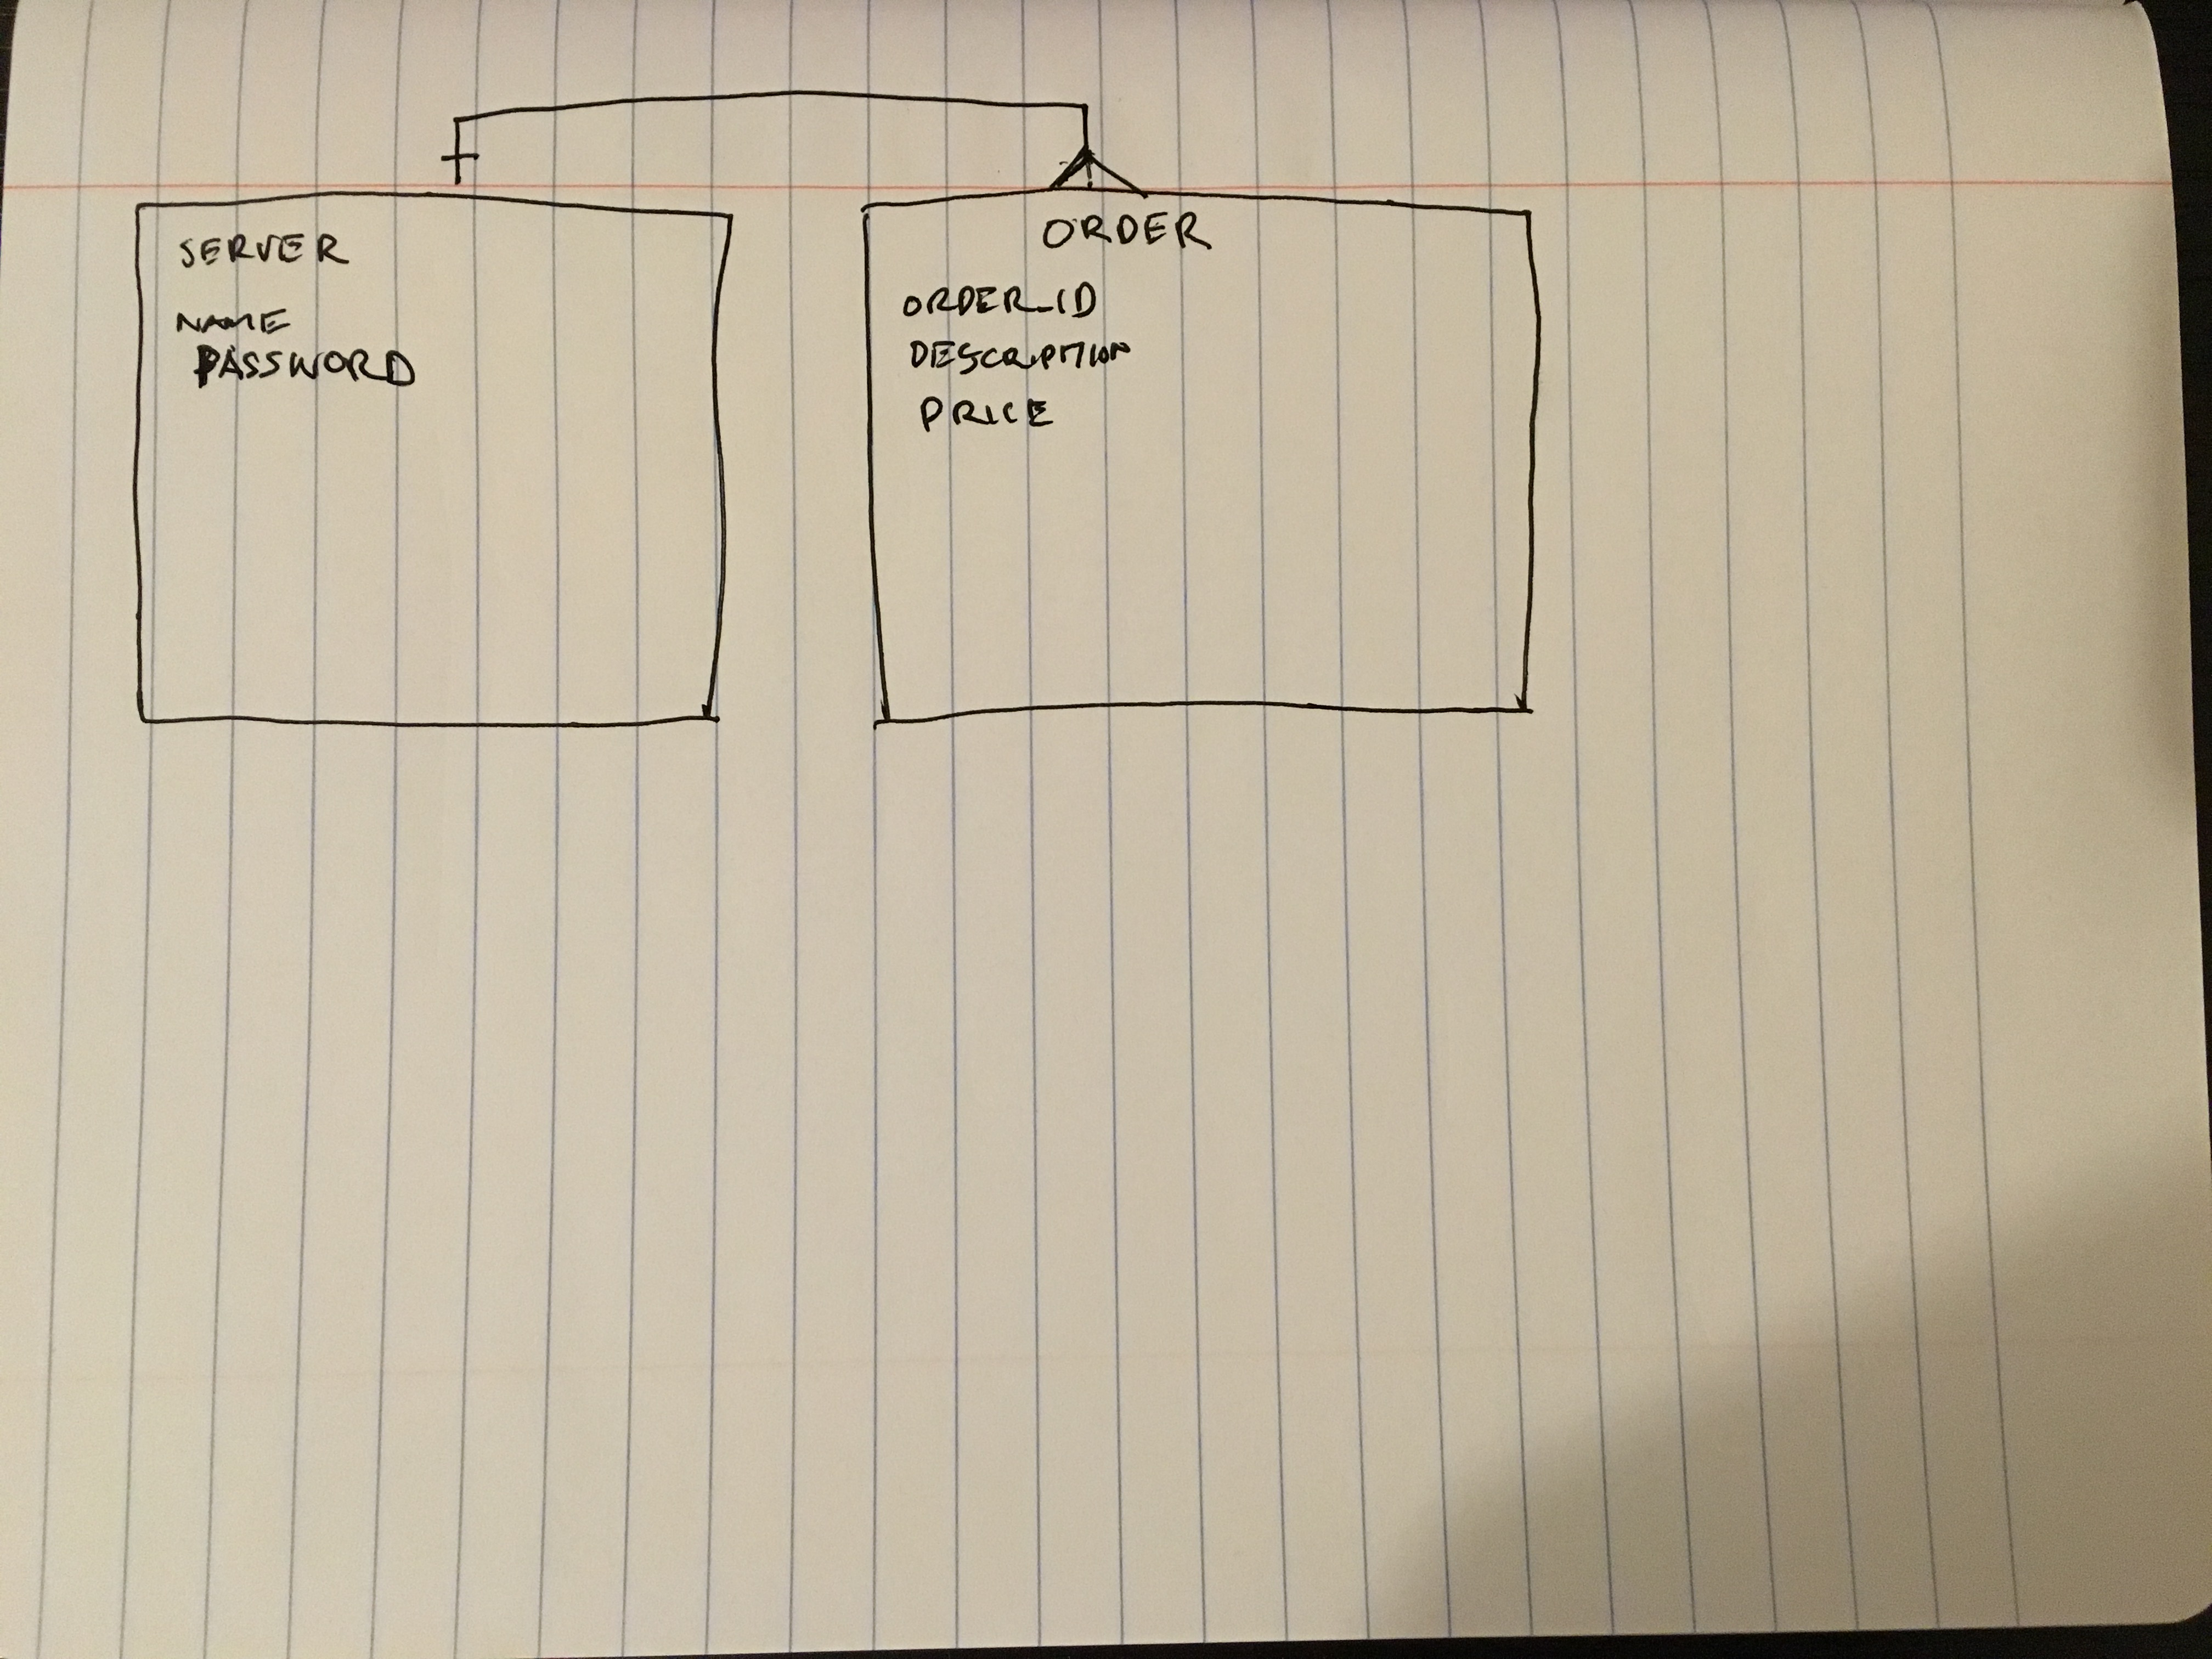 SERVER
NAME
PASSWORD
ORDER
ORDER_ID
DESCRIPTION
PRICE